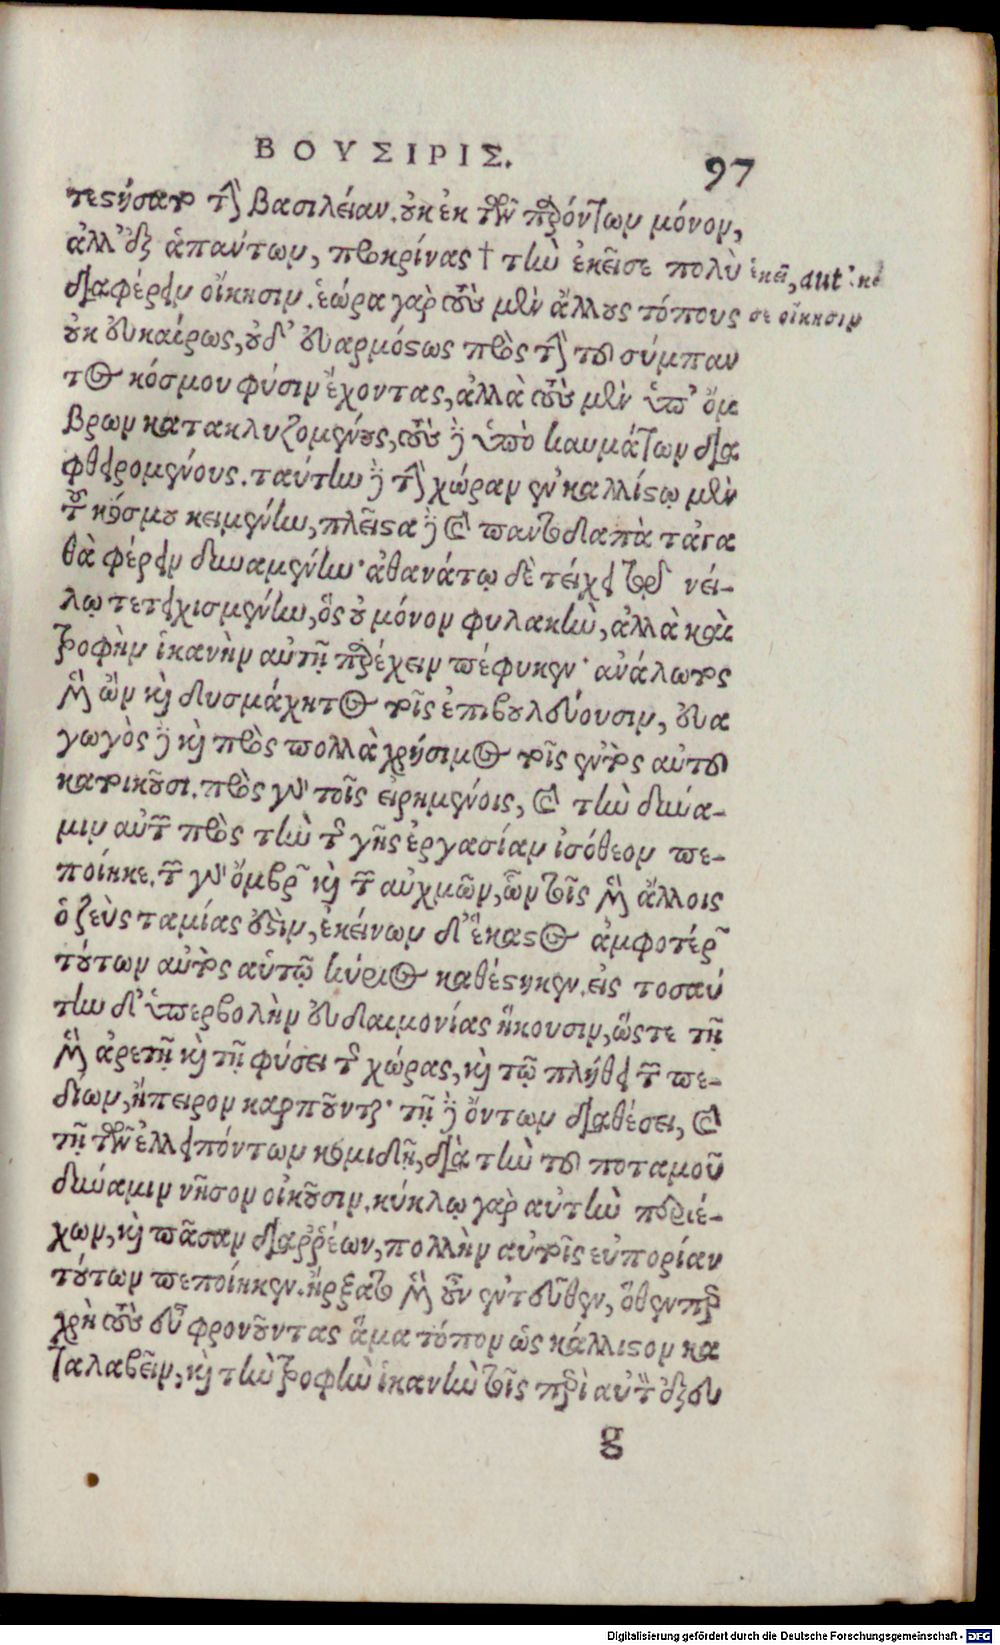 ΒΟΥΣΙΡΙΣ. 97
τεστήσατο τὴν βασιλείαν. οὐκ ἐκ τῶν παρόντων μόνον,
ἀλλ' ἐξ ἁπάντων, προκρίνας † τὴν ἐκεῖσε πολὺ
διαφέρειν οἴκησιν. ἑώρα γὰρ τοὺς μὲν ἄλλους τόπους
οὐκ εὐκαίρως, οὐδ' εὐαρμόστως πρὸς τὴν τοῦ σύμπαν
τος κόσμου φύσιν ἔχοντας, ἀλλὰ τοὺς μὲν ὑπ' ὄμ
βρων κατακλυζομένους, τοὺς δὲ ὑπὸ καυμάτων δια
φθειρομένους. ταύτην δὲ τὴν χώραν ἐν καλλίστῳ μὲν
τοῦ κόσμου κειμένην, πλεῖστα δὲ καὶ παντοδαπὰ τἀγα
θὰ φέρειν δυναμένην· ἀθανάτῳ δὲ τείχει τῷ νεί-
λῳ τετειχισμένην, ὃς οὐ μόνον φυλακὴν, ἀλλὰ καὶ
τροφὴν ἱκανὴν αὐτῇ παρέχειν πέφυκεν· ἀνάλωτος
μὲν ὢν καὶ δυσμάχητος τοῖς ἐπιβουλεύουσιν, εὐα
γωγὸς δὲ καὶ πρὸς πολλὰ χρήσιμος τοῖς ἐντὸς αὐτοῦ
κατοικοῦσι. πρὸς γὰρ τοῖς εἰρημένοις, καὶ τὴν δύνα-
μιν αὐτῶν πρὸς τὴν τῆς γῆς ἐργασίαν ἰσόθεον πε-
ποίηκε. τῶν γὰρ ὄμβρων καὶ τῶν αὐχμῶν, ὧν τοῖς μὲν ἄλλοις
ὁ ζεὺς ταμίας ἐστὶν, ἐκείνων δ' ἕκαστος ἀμφοτέρων
τούτων αὐτὸς αὑτῷ κύριος καθέστηκεν. εἰς τοσαύ
την δ' ὑπερβολὴν εὐδαιμονίας ἥκουσιν, ὥστε τῇ
μὲν ἀρετῇ καὶ τῇ φύσει τῆς χώρας, καὶ τῷ πλήθει τῶν πε-
δίων, ἤπειρον καρποῦνται· τῇ δὲ ὄντων διαθέσει, καὶ
τῇ τῶν ἐλλειπόντων κομιδῇ, διὰ τὴν τοῦ ποταμοῦ
δύναμιν νῆσον οἰκοῦσιν. κύκλῳ γὰρ αὐτὴν περιέ-
χων, καὶ πᾶσαν διαῤῥέων, πολλὴν αὐτοῖς εὐπορίαν
τούτων πεποίηκεν. ἤρξατο μὲν οὖν ἐντεῦθεν, ὅθενπερ
χρὴ τοὺς εὖ φρονοῦντας ἅμα τόπον ὡς κάλλιστον κα
ταλαβεῖν, καὶ τὴν τροφὴν ἱκανὴν τοῖς περὶ αὐτὸν ἐξευ
g
ἐκεῖ, aut
σε οἴκησιν
Digitalisierung gefördert durch die Deutsche Forschungsgemeinschaft - DFG